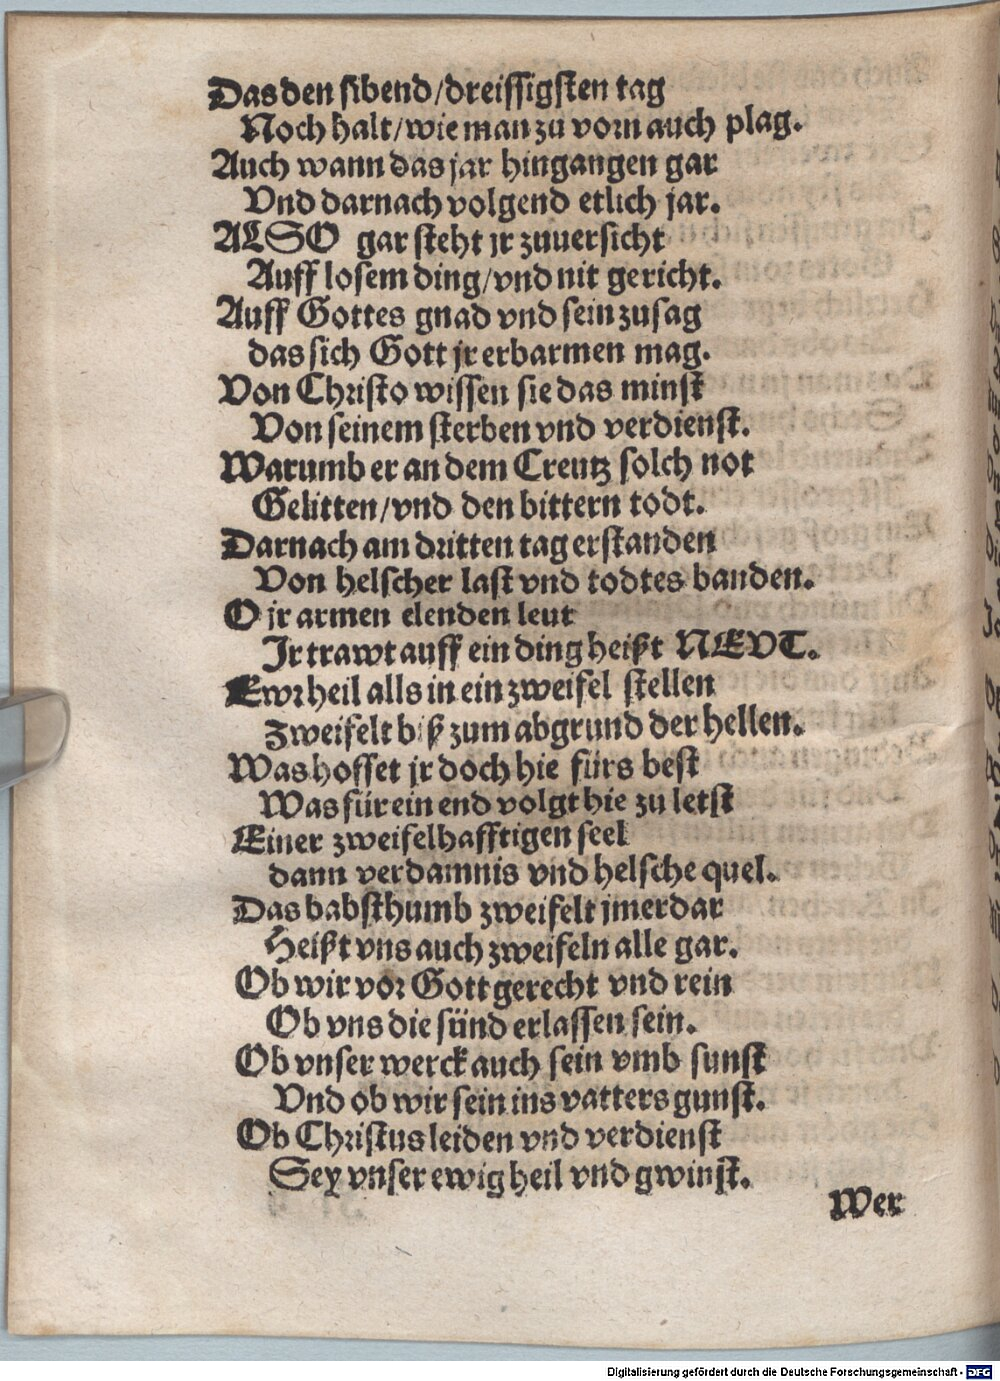 Das den sibend/dreissigsten tag
Noch halt/wie man zu vorn auch plag.
Auch wann das jar hingangen gar
Vnd darnach volgend etlich jar.
ALSO gar steht jr zuuersicht
Auff losem ding/vnd nit gericht.
Auff Gottes gnad vnd sein zusag
das sich Gott jr erbarmen mag.
Von Christo wissen sie das minst
Von seinem sterben vnd verdienst.
Warumb er an dem Creutz solch not
Gelitten/vnd den bittern todt.
Darnach am dritten tag erstanden
Von helscher last vnd todtes banden.
O jr armen elenden leut
Jr trawt auff ein ding heißt NEVT.
Ewr heil alls in ein zweifel stellen
Zweifelt biß zum abgrund der hellen.
Was hoffet jr doch hie fürs best
Was für ein end volgt hie zu letst
Einer zweifelhafftigen seel
dann verdamnis vnd helsche quel.
Das babsthumb zweifelt jmerdar
Heißt vns auch zweifeln alle gar.
Ob wir vor Gott gerecht vnd rein
Ob vns die sünd erlassen sein.
Ob vnser werck auch sein vmb sunst
Vnd ob wir sein ins vatters gunst.
Ob Christus leiden vnd verdienst
Sey vnser ewig heil vnd gwinst.
Wer
Digitalisierung gefördert durch die Deutsche Forschungsgemeinschaft - DFG